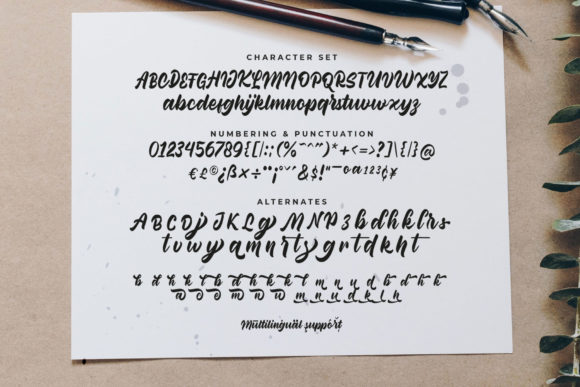 CHARACTER SET
ABCDEFGHIJKLMNOPQRSTUVWXYZ
abcdefghijklmnopqrstuvwxyz
NUMBERING & PUNCTUATION
0123456789{[/|:;(%~^"”)*+<=>?]\{|}@
€£©¿ßx÷¨¡°˘&$!"¯ºª¹²³¢¥
ALTERNATES
ABCDj JKLg MNP3bdhklrs
tuwyamrtygrtdkht
Multilingual support